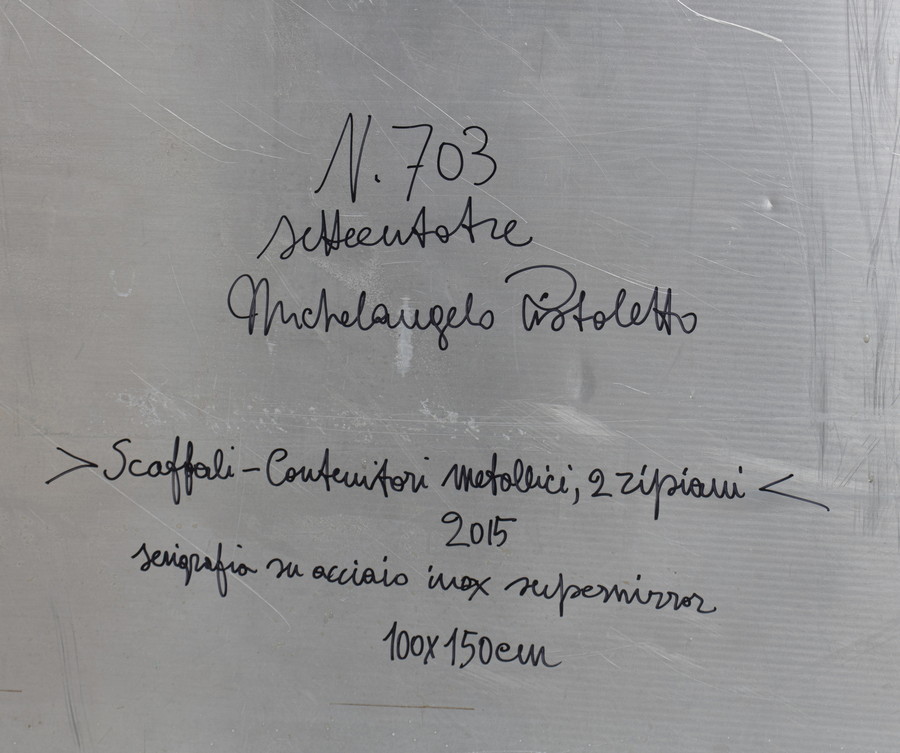 N. 703
settecentotre
Michelangelo Pistoletto
> Scaffali - Contenitori metallici, 2 ripiani <
2015
serigrafia su acciaio inox supermirror
100x150cm